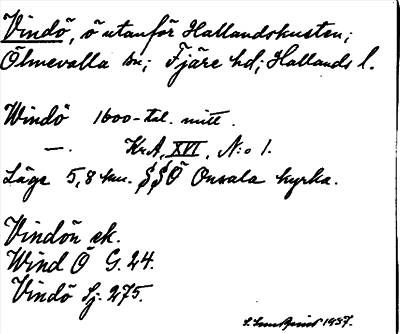 Vindö, ö utanför Hallandskusten;
Ölmevalla sn; Fjäre hd; Hallands l.
Windö 1600-tal. mitt.
—. KrA, XVI, N:o 1.
Läge 5,8 km. SSÖ Onsala kyrka.
Vindön ek.
Wind Ö G. 24.
Vindö Sj. 275.
1937.